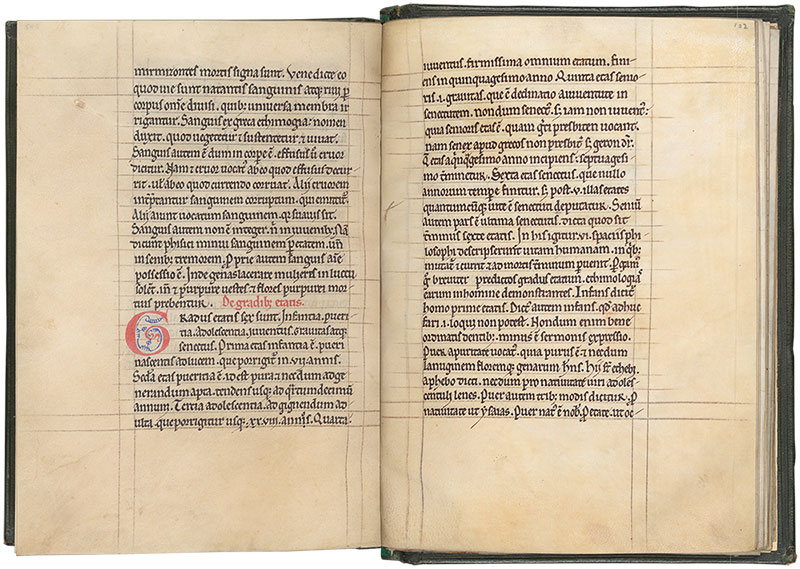 mirmirontes mortis signa sunt. Vene dicte eo
quod vie sunt natantis sanguinis atq; riui p
corpus om̄e diuisi. quib; uniuersa membra ir
rigantur. Sanguis ex greca ethimogia: nomen
duxit. quod uegetetur & sustentetur & uiuat.
Sanguis autem ē dum in corpe ē. effusus u̅ cruor
dicitur. Nam & cruor uocat᷑ ab eo quod effusus decur
rit. ul᷑ ab eo quod currendo corruat. Alij cruorem
int̅p̅tantur sanguinem corruptum. qui emittit᷑.
Alij aiunt uocatum sanguinem. q̅ suauis sit.
Sanguis autem non ē integer. n̅ in iuuenib; Nā
dicunt phisici minui sanguinem p etatem. un̅
in senib; tremorem. Pprie autem sanguis aīe
possessio ē. Inde genas lacerare mulieres in luctu
solent. in̅ & purpuree uestes & flores purpurei mor
tuis prebentur. De gradib; etatis.
Gradus etatis sex sunt. Infantia, pueri
tia. adolescentia, iuuentus. grauitas atq;
senectus. Prima etas infantia ē. pueri
nascentis ad lucem. que porrigit᷑ in .vii. annis.
Sc̅da etas puericia ē. id est pura. & necdum ad ge
nerandum apta. tendens usq; ad qr̅tum decimū
annum. Tercia adolescentia. ad gignendum ad
ulta. que porrigitur usq; .xx.viii. annis. Quarta
102
iuuentus. firmissima omnium etatum. fini-
ens in quinquagesimo anno. Quinta etas senio
ris .i. grauitas. que ē declinatio a iuuentute in
senectutem. non dum senect᷑. s; iam non iuuent᷑:
quia senioris etas ē. quam gr̅i presbiteri uocant.
nam senex apud grecos non presbit᷑. s; geron dr̅.
Q̅ etas a q̅nq̅gesimo anno incipiens: septuagesi-
mo t̅minetur. Sexta etas senectus. que nullo
annorum tempe finitur. s; post .v. illas etates
quantumcūq; uite ē senectuti deputatur. Senium
autem pars ē ultima senectutis. dicta quod sit
t̅minus sexte etatis. In his igitur .vi. spaciis phi
losophi descripserunt uitam humanam. in qib;
mutat᷑ & currit & ad mortis t̅minum puenit. Pgam᷑
g̅ breuiter predictos gradus etatum. ethimologias
earum in homine demonstrantes. Infans dicit᷑
homo prime etatis. Dict᷑ autem infans. qd̅ adhuc
fari .i. loqui non potest. Nondum enim bene
ordinatis dentib; minus ē sermonis expressio.
Puer a puritate uocat᷑. quia purus ē & necdum
lanuginem floremq; genarum hn̅s. Hij st̅ ephebi
a phebo dicti. necdum pro natiuitate uiri adoles
centuli lenes. Puer autem trib; modis dicitur. P
natiuitate ut ysaias. Puer nat᷑ ē nob̅. P etate. ut oc-